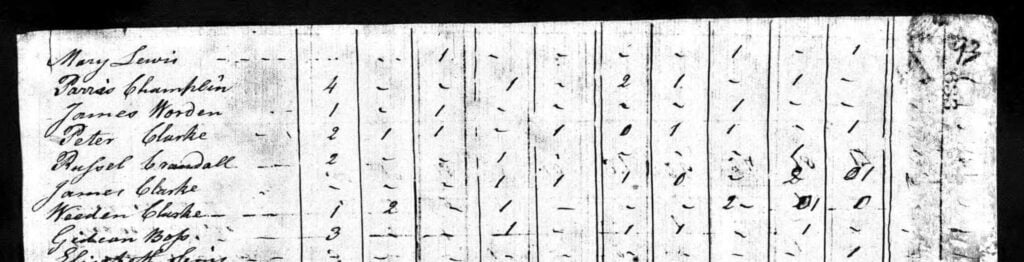 Mary Lewis - - 1 - - - - 1 - 1
Parris Champlin 4 - - 1 - 2 1 - 1 -
James Worden 1 - 1 - - - - 1 - -
Peter Clarke 2 1 1 - 1 0 1 1 - 1
Russel Crandall 2 - - 1 - - - -
James Clarke - - - 1 1 1 0 - 2 01
Weeden Clarke 1 2 - 1 - - - 2 01 0
Gideon Boss 3 - - 1 - 1 1 - 1 -
1
93